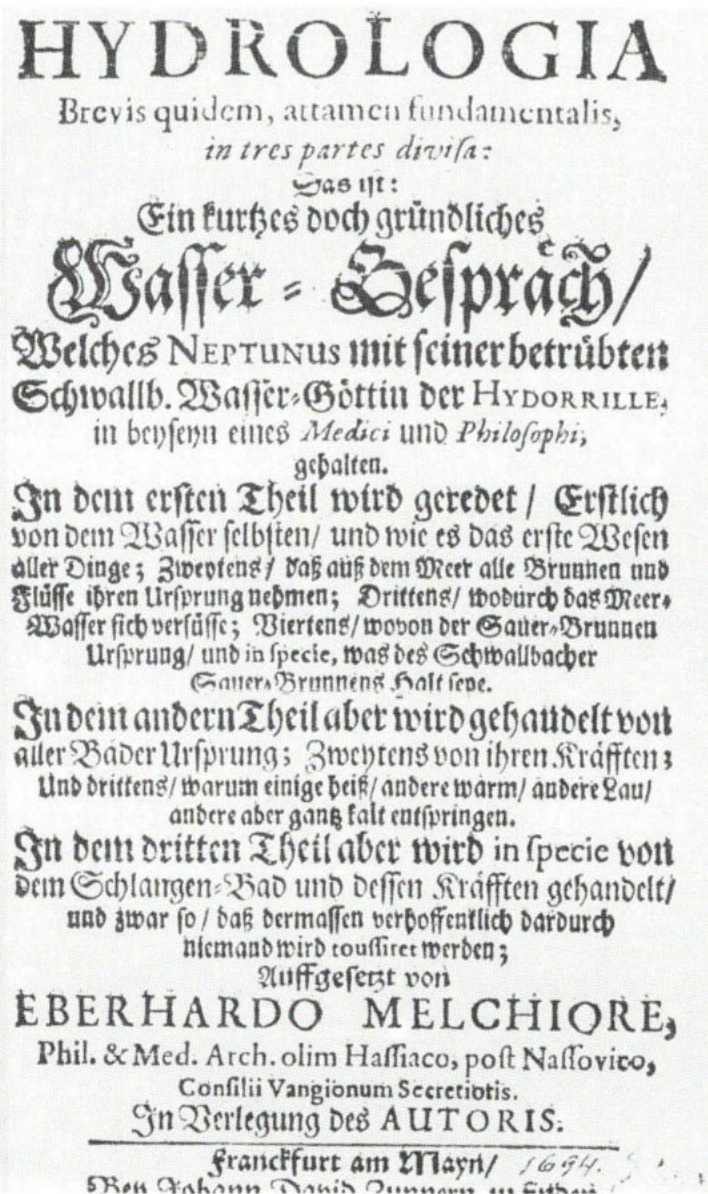 HYDROLOGIA
Brevis quidem, attamen fundamentalis,
in tres partes divisa:
Das ist:
Ein kurtzes doch gründliches
Wasser-Gespräch/
Welches NEPTUNUS mit seiner betrübten
Schwallb. Wasser-Göttin der HYDORRILLE,
in beyseyn eines Medici und Philosophi,
gehalten.
In dem ersten Theil wird geredet / Erstlich
von dem Wasser selbsten/ und wie es das erste Wesen
aller Dinge; Zweytens/ daß auß dem Meer alle Brunnen und
Flüsse ihren Ursprung nehmen; Drittens/ wodurch das Meer-
Wasser sich versüsse; Viertens/ wovon der Sauer-Brunnen
Ursprung/ und in specie, was des Schwallbacher
Sauer-Brunnens Halt seye.
In dem andern Theil aber wird gehandelt von
aller Bäder Ursprung; Zweytens von ihren Kräfften;
Und drittens/ warum einige heiß/ andere warm/ andere Lau/
andere aber gantz kalt entspringen.
In dem dritten Theil aber wird in specie von
dem Schlangen-Bad und dessen Kräfften gehandelt/
und zwar so / daß dermassen verhoffentlich dardurch
niemand wird toussiret werden;
Auffgesetzt von
EBERHARDO MELCHIORE,
Phil. & Med. Arch. olim Hassiaco, post Nassovico,
Consilii Vangionum Secretioris.
In Verlegung des AUTORIS.
Franckfurt am Mayn/ 1694.
Bey Johann David Zunnern zu finden